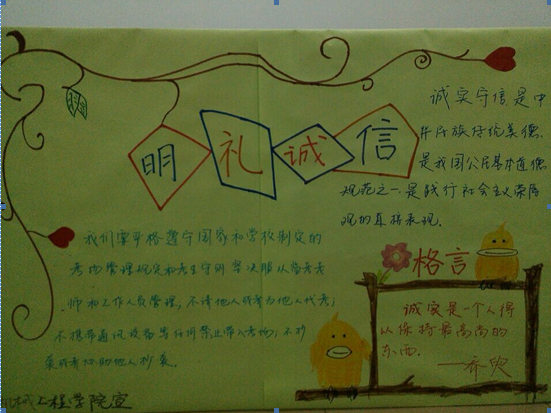 明礼诚信
诚实守信是中
华民族传统美德、
是我国公民基本道德
规范之一、是践行社会主义荣辱
观的直接表现。
我们要严格遵守国家和学校制定的
考场管理规定和考生守则 坚决服从监考老
师和工作人员管理,不请他人代考为他人代考;
不携带通讯设备等任何禁止带入考场;不抄
袭或者协助他人抄袭。
格言
诚实是一个人得
以保持最高尚的
东西。
——乔叟
机械工程学院宣